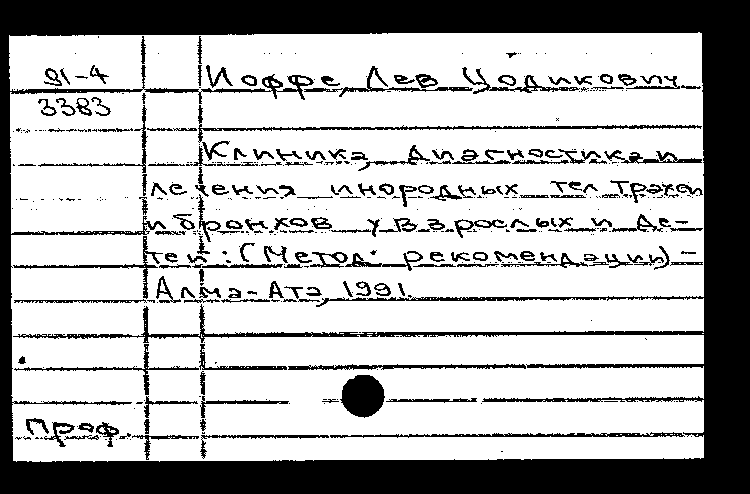 91-4
3383
Иоффе, Лев Цодикович
Клиника, диагностика и
лечения инородных тел трахеи
и бронхов у взрослых и де-
тей : (Метод. рекомендации) -
Алма-Ата, 1991.
Проф.